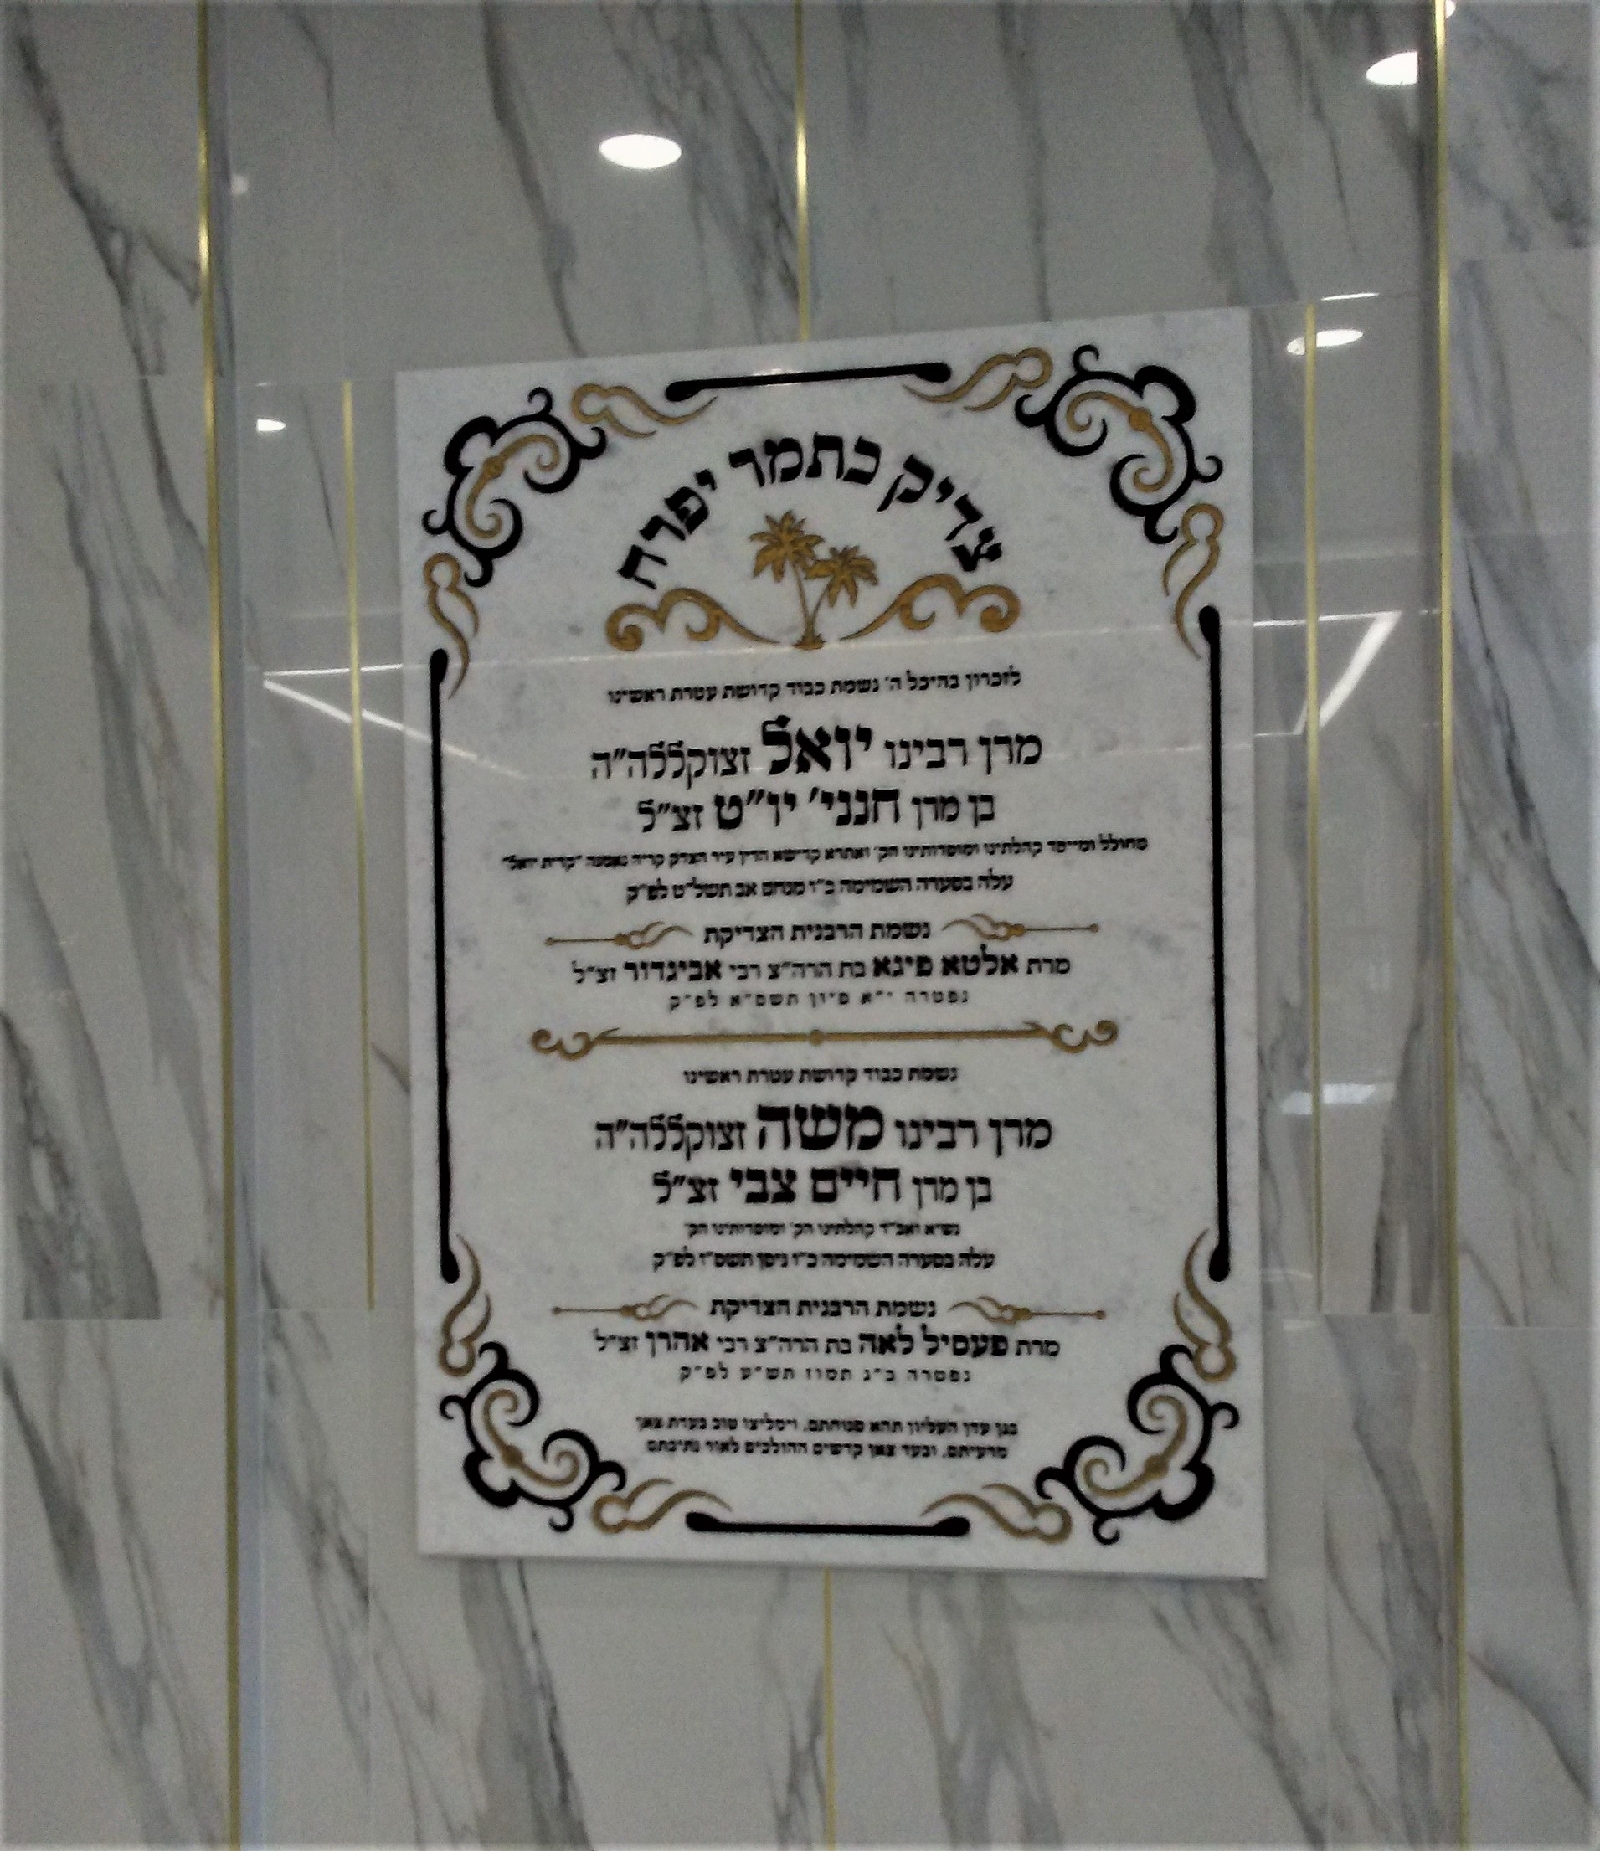 צדיק כתמר יפרח
לזכרון בהיכל ה' נשמת כבוד קדושת עטרת ראשינו
מרן רבינו יואל זצוקללה"ה
בן מרן חנני' יו"ט זצ"ל
מחולל ומייסד קהלתינו ומוסדותינו הק' ואתרא קדישא הדין עיר הצדק קריה נאמנה "קרית יואל"
עלה בסערה השמימה כ"ו מנחם אב תשל"ט לפ"ק
נשמת הרבנית הצדיקת
מרת אלטא פיגא בת הרה"צ רבי אביגדור זצ"ל
נפטרה י"א סיון תשס"א לפ"ק
נשמת כבוד קדושת עטרת ראשינו
מרן רבינו משה זצוקללה"ה
בן מרן חיים צבי זצ"ל
נשיא ואב"ד קהלתינו הק' ומוסדותינו הק'
עלה בסערה השמימה כ"ו ניסן תשס"ו לפ"ק
נשמת הרבנית הצדיקת
מרת פעסיל לאה בת הרה"צ רבי אהרן זצ"ל
נפטרה כ"ג תמוז תש"ע לפ"ק
בגן עדן העליון תהא מנוחתם, וימליצו טוב בעדת צאן
מרעיתם, ובעד צאן קדשים ההולכים לאור נתיבתם